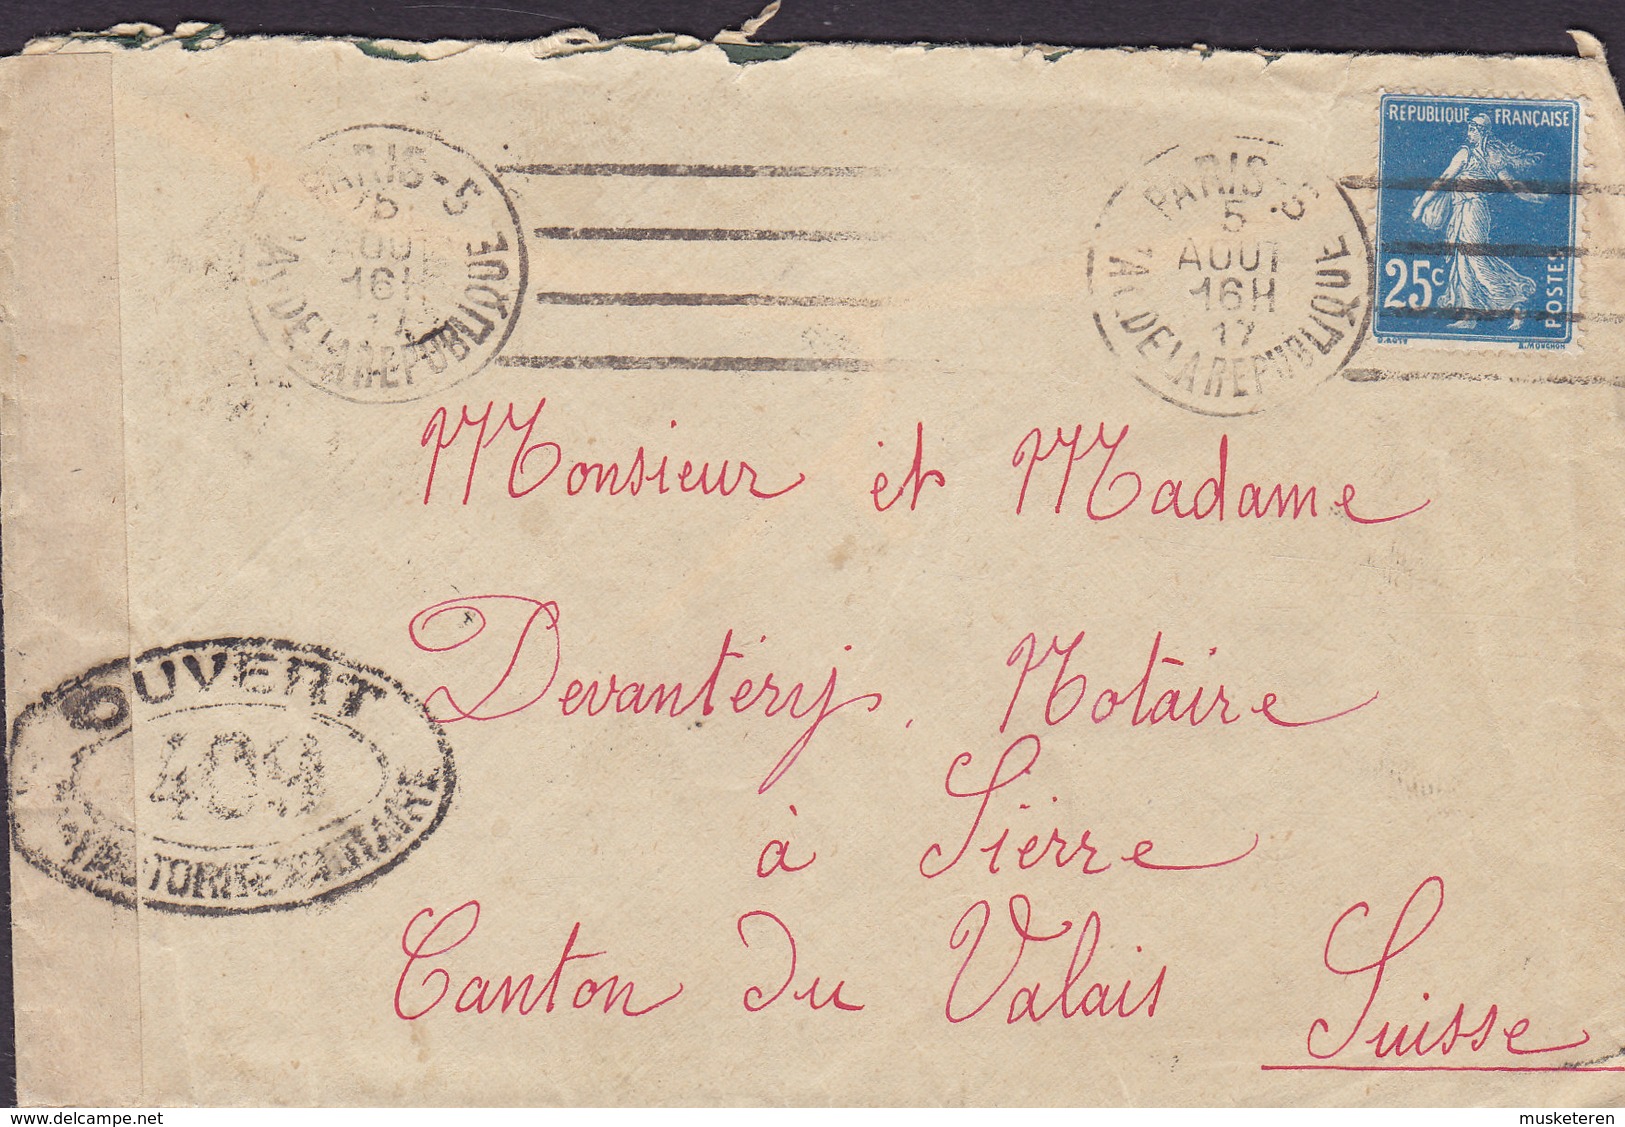 REPUBLIQUE FRANÇAISE
25c
POSTES
PARIS-5
5
AOUT
16H
17
AV. DE LA REPUBLIQUE
PARIS-5
AOUT
16H
17
AV. DE LA REPUBLIQUE
Monsieur et Madame
Devantéry, Notaire
à Sierre
Canton du Valais
Suisse
OUVERT
409
MILITAIRE
musketeren.com